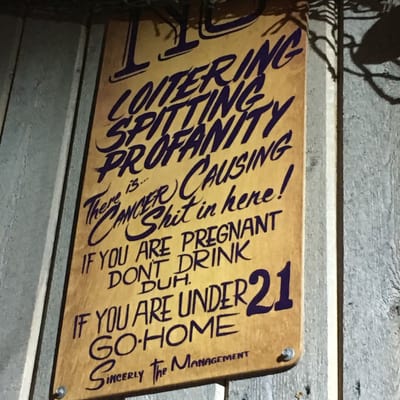 NO
LOITERING
SPITTING
PROFANITY
There is...
CANCER CAUSING
Shit in here!
IF YOU ARE PREGNANT
DONT DRINK
DUH.
IF YOU ARE UNDER 21
GO·HOME
Sincerly the Management